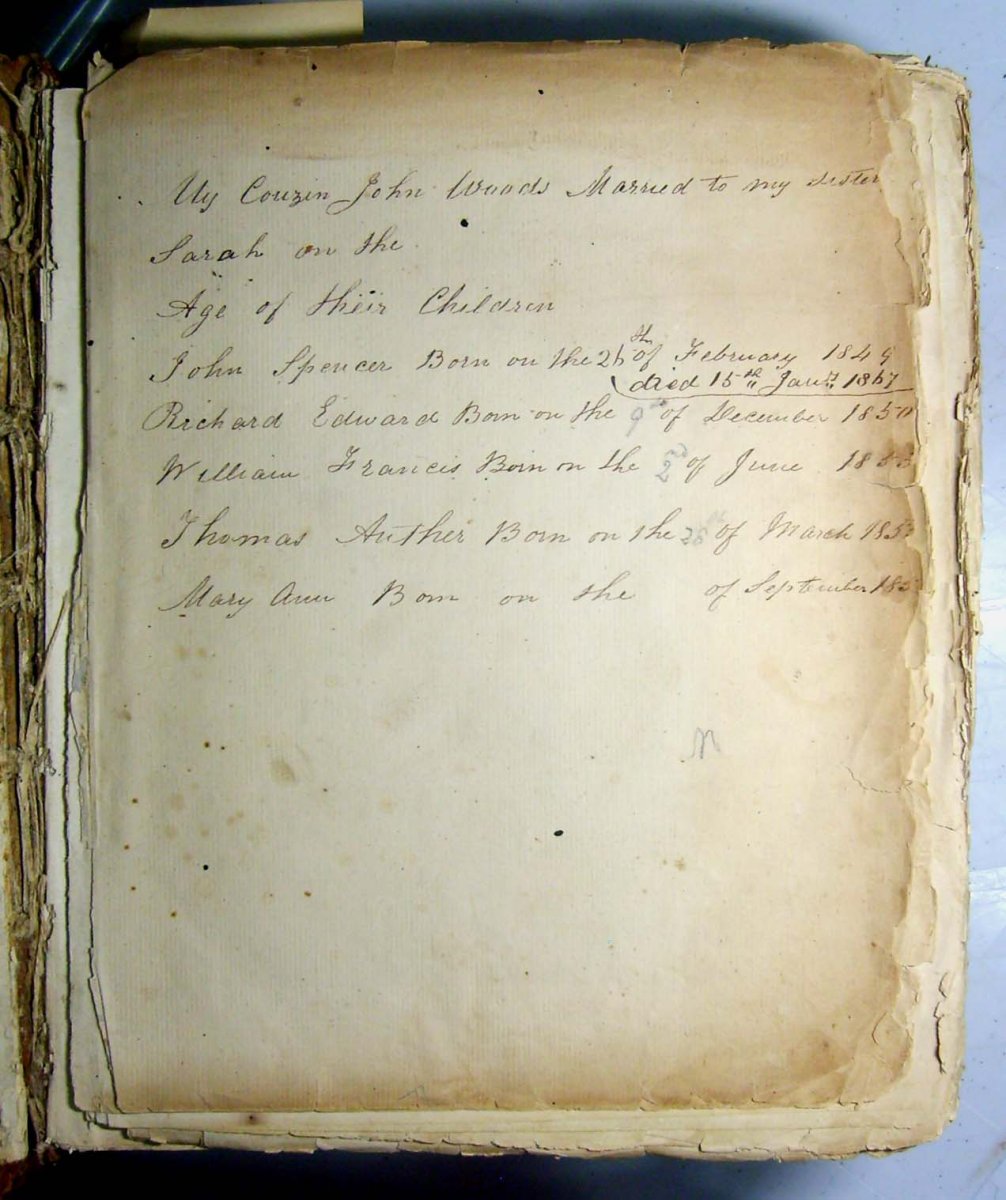 My Couzin John Woods Married to my sister
Sarah on the
Age of their Children
John Spencer Born on the 26th of February 1849
died 15th Jany 1857
Richard Edward Born on the 9th of December 1850
William Francis Born on the 2nd of June
Thomas Auther Born on the 26th of March
Mary Ann Born on the of September
N